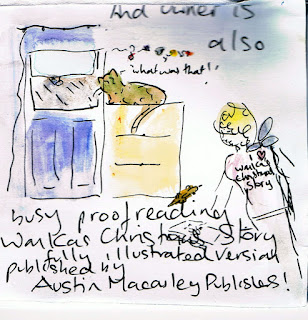 And owner is
also
"what was that!"
I ♥
Wayka's
Christmas
Story
busy proofreading
Waykas Christmas Story
fully illustrated version
published by
Austin Macauley Publishes!